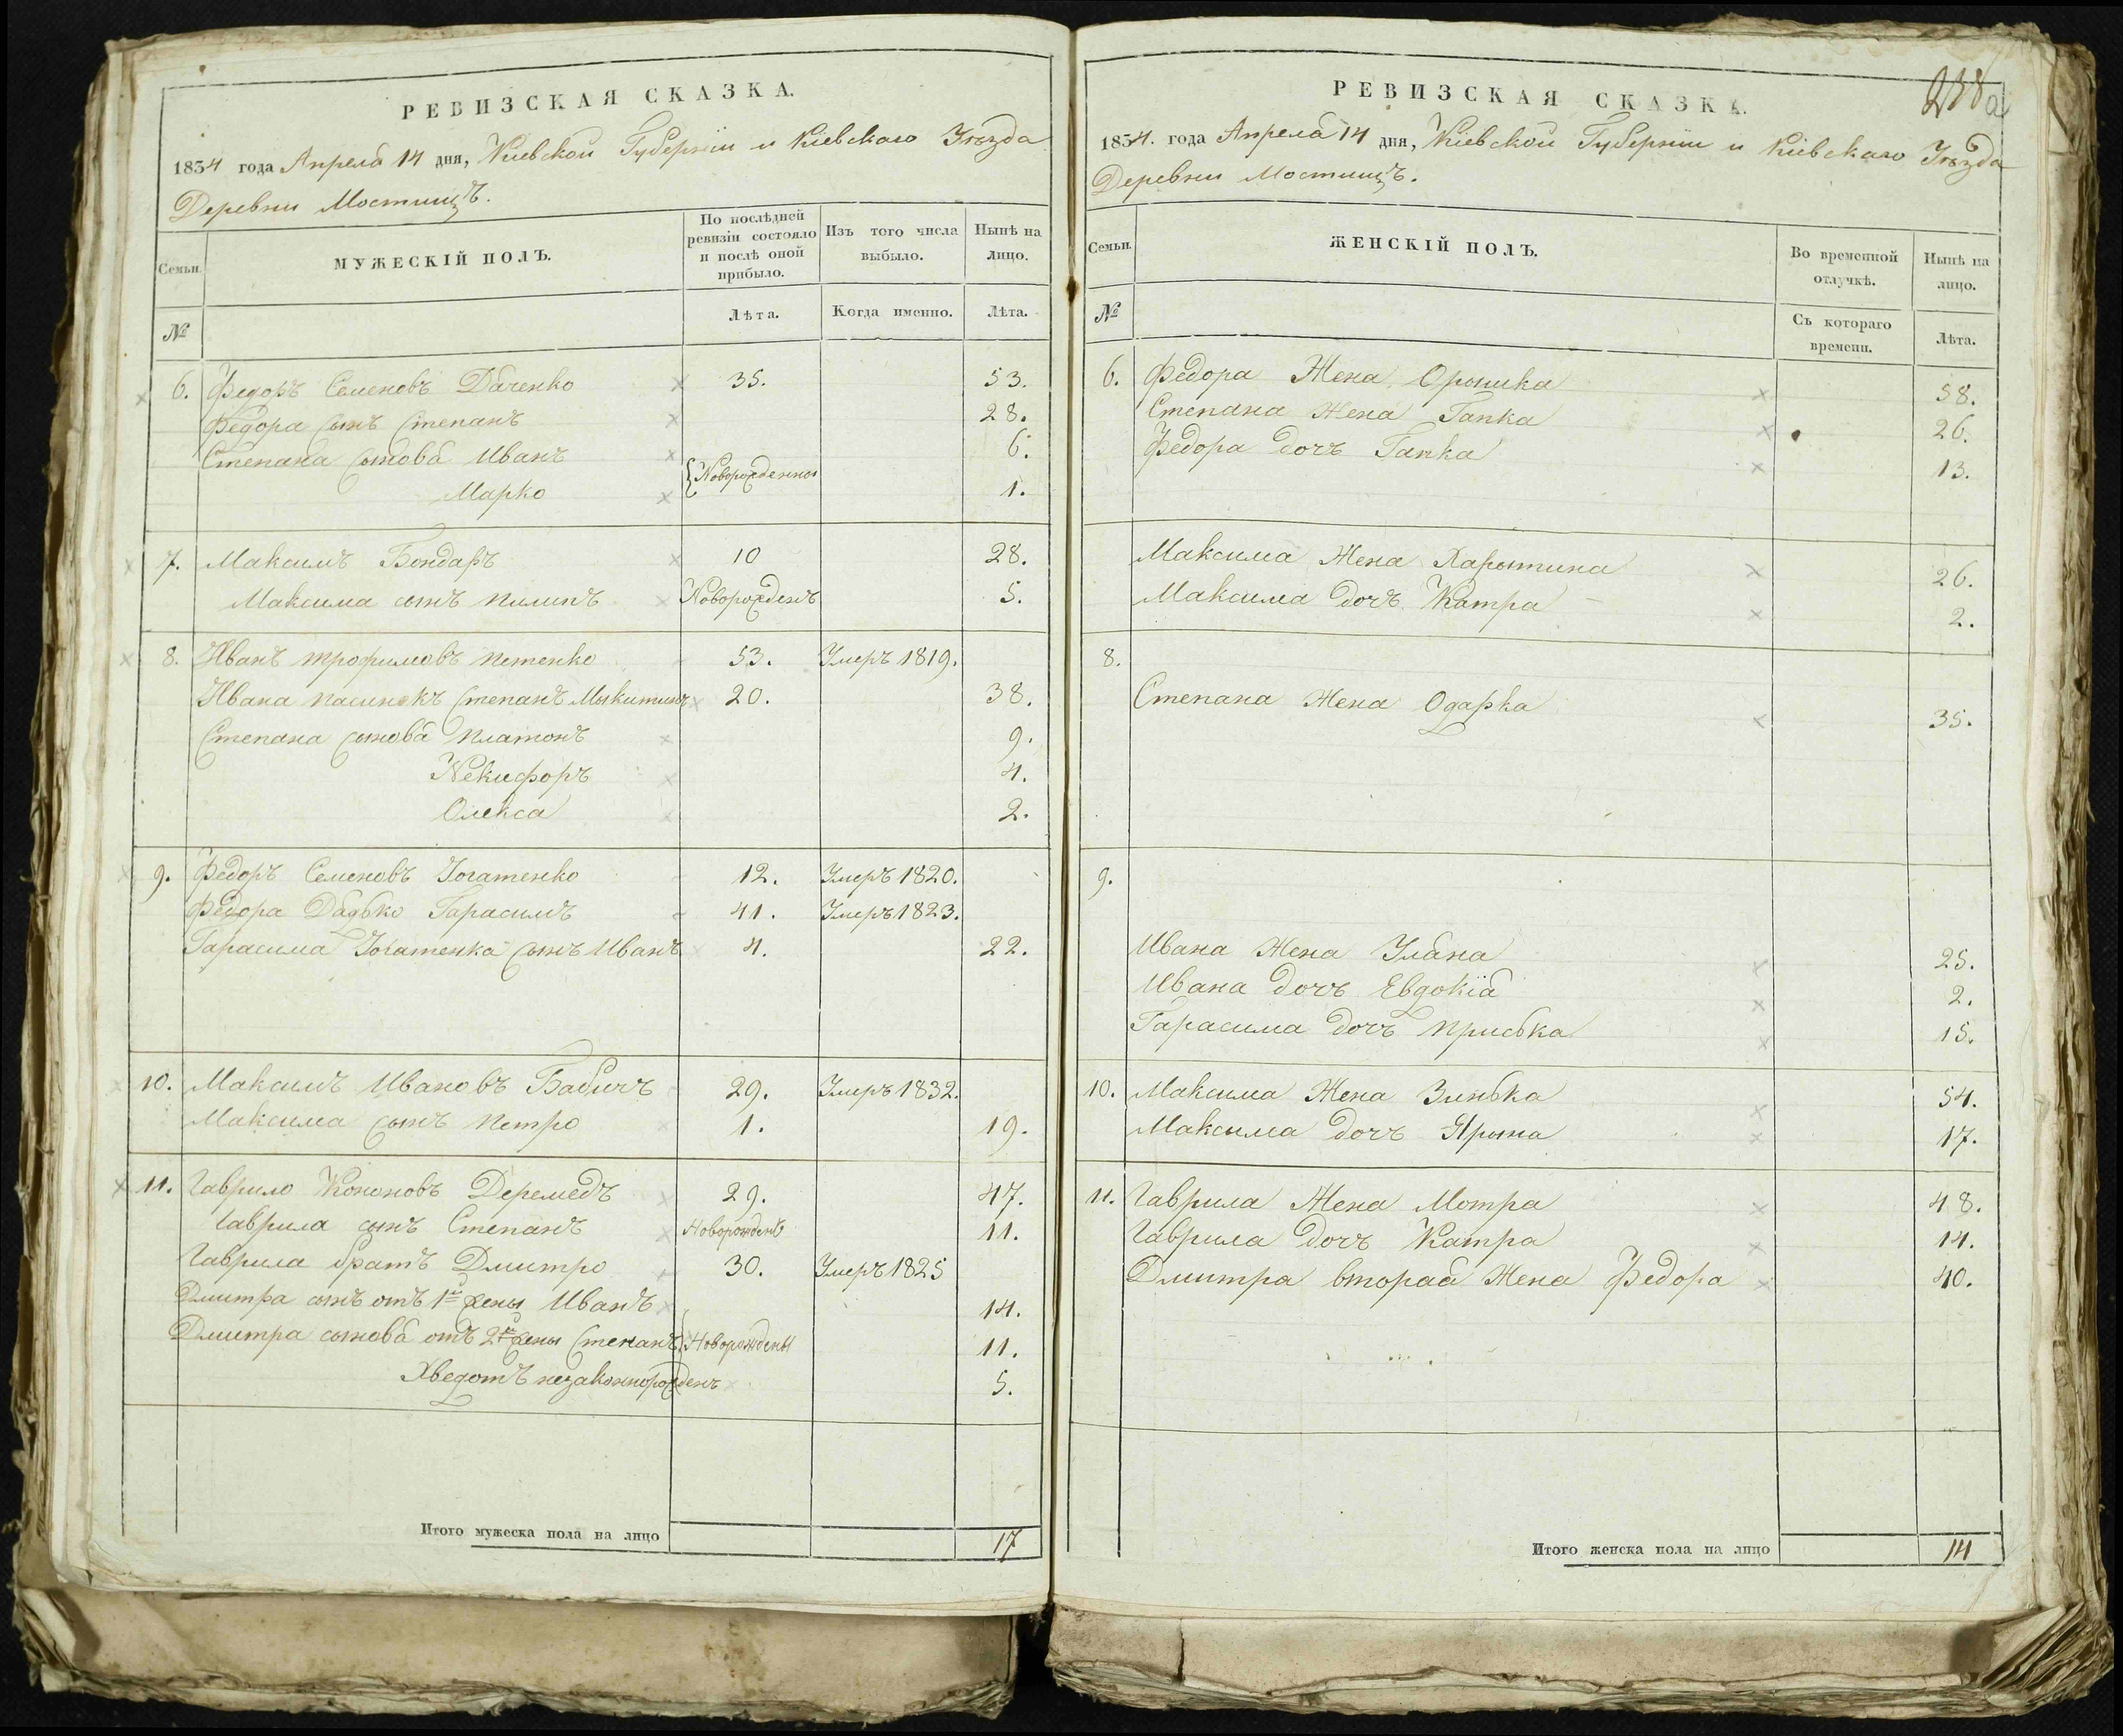 РЕВИЗСКАЯ СКАЗКА.
1834 года Апреля 14 дня, Кіевской Губерніи и Кіевскаго Уѣзда
Деревни Мостищъ.
Семьи. МУЖЕСКІЙ ПОЛЪ. По послѣдней ревизіи состояло и послѣ оной прибыло. Изъ того числа выбыло. Нынѣ на лицо.
№ Лѣта. Когда именно. Лѣта.
6. Федоръ Семеновъ Даченко 35. 53.
Федора сынъ Степанъ 28.
Степана сыновя Иванъ 6.
Новорожденны
Марко 1.
7. Максимъ Бондаръ 10 28.
Максима сынъ Пилипъ Новорожденъ 5.
8. Иванъ Трофимовъ Петенко 53. Умеръ 1819.
Ивана пасинокъ Степанъ Мыкитинъ 20. 38.
Степана сыновя Платонъ 9.
Некифоръ 4.
Олекса 2.
9. Федоръ Семеновъ 12. Умеръ 1820.
Федора Дядько Гарасимъ 41. Умеръ 1823.
Гарасима сынъ Иванъ 4. 22.
10. Максимъ Ивановъ Бабичъ 29. Умеръ 1832.
Максима сынъ Петро 1. 19.
11. Гаврило Кононовъ Деремедъ 29. 47.
Гаврила сынъ Степанъ Новорожденъ 11.
Гаврила братъ Дмитро 30. Умеръ 1825
Дмитра сынъ отъ 1й жены Иванъ 14.
Дмитра сыновя отъ 2й жены Степанъ Новорождены 11.
Хведотъ незаконнорожденъ 5.
Итого мужеска пола на лицо 17
238
РЕВИЗСКАЯ СКАЗКА.
1834. года Апреля 14 дня, Кіевской Губерніи и Кіевскаго Уѣзда
Деревни Мостищъ.
Семьи. ЖЕНСКІЙ ПОЛЪ. Во временной отлучкѣ. Нынѣ на лицо.
№ Съ котораго времени. Лѣта.
6. Федора Жена Орышка 58.
Степана Жена Гапка 26.
Федора дочъ Гапка 13.
Максима Жена Харытина 26.
Максима дочъ Катра 2.
8.
Степана Жена Одарка 35.
9.
Ивана Жена Уляна 25.
Ивана дочъ Евдокія 2.
Гарасима дочъ Приська 15.
10. Максима Жена Зинька 54.
Максыма дочъ Ярына 17.
11. Гаврила Жена Мотра 48.
Гаврила дочъ Катра 14.
Дмитра вторая Жена Федора 40.
Итого женска пола на лицо 14